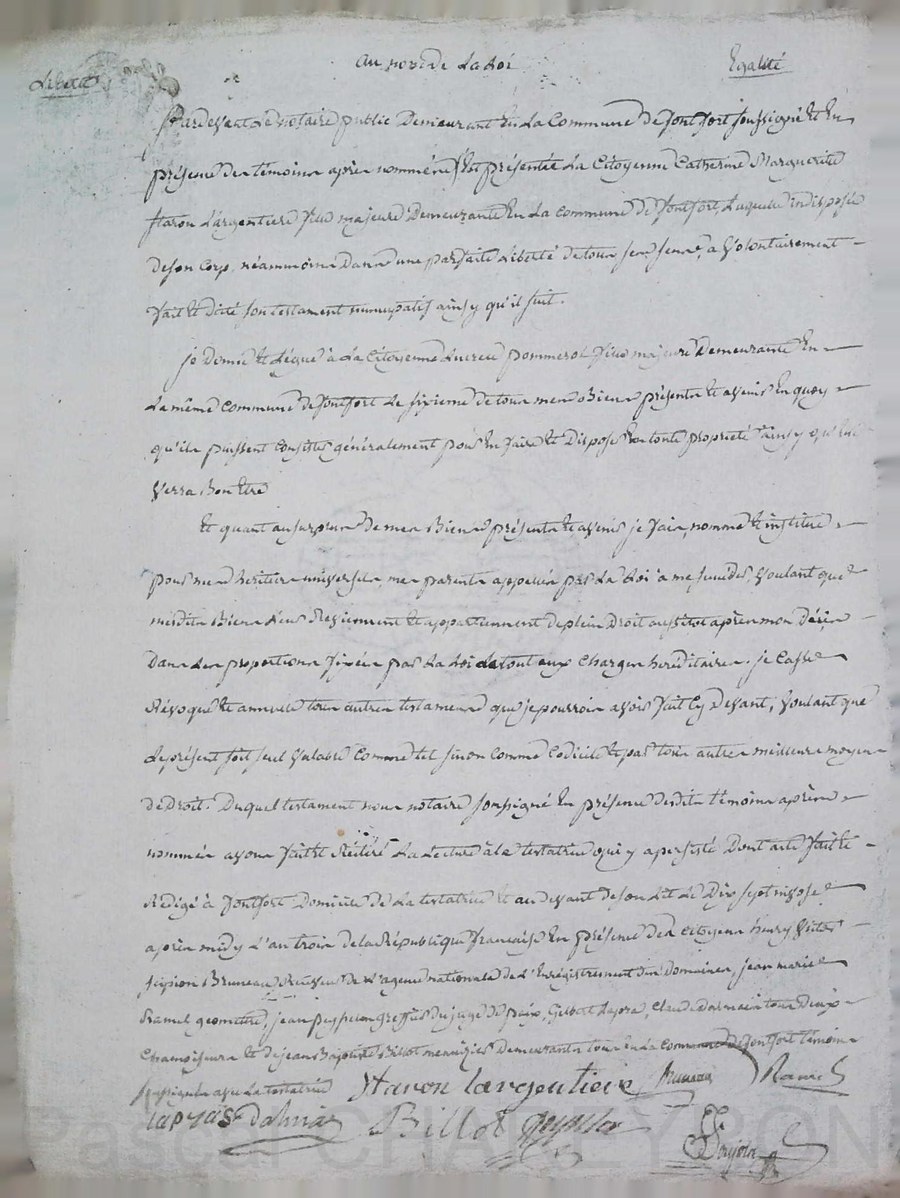 Liberté au nom de La Loi Egalité
Pardevant Le notaire public Demeurant En La Commune De fontfort soussigné Et En
présence des témoins après nommés Est présentée La Citoyenne Catherine Marguerite
Haron Largentiere fille majeure Demeurante En La commune De fontfort, Laquelle indisposée
de son Corp, néammoins Dans une parfaite Liberté de tous ses sens, a Volontairement
fait Et dicté son testament nuncupatif ainsy qu'il suit.
je Donne Et Lègue à La Citoyenne Lucrece pommerol fille majeure Demeurante En
La même commune De fontfort Le sixieme de tous mes Biens présents Et avenir En quoy
qu'ils puissent Consister généralement pour En faire Et Disposer En toute propriété ainsy qu'Elle
Verra Bon Etre
Et quant au surplus De mes Biens présents Et avenir je fais, nomme Et institue
pour mes heritiers universels mes parents appellés par La Loi à me succéder, Voulant que
mesdits Biens Leur Reviennent Et appartiennent de plein Droit aussitot après mon décès
Dans Les proportions fixées par La Loi Le tout aux Charges héréditaires. je Casse
Révoque Et annulle tous autres testaments que je pourrois avoir fait Cy devant, Voulant que
Le présent soit seul Valable Comme tel sinon comme Codicile Et par tous autres meilleurs moyens
de Droit. Duquel testament nous notaire soussigné En présence desdits témoins après
nommés avons fait Et Réitéré La Lecture à La testatrice qui y a persisté Dont acte fait Et
Rédigé à fontfort Domicile De La testatrice Et au devant De son Lit Le Dix sept nivose
après midy L'an trois de La République française En présence des Citoyens henry Victor
scipion Bruneau Receveur de L'agence nationale de L'Enregistrement Des Domaines, jean marie
Ramel géometre, jean peyssson greffier du juge de paix, Gilbert Lapra, Claude Dormain tous Deux
Chamoiseurs Et de jean Baptiste Billot menuizier Demeurants tous En La Commune De fontfort témoins
soussignés avec La testatrice Haron Largentiere Bruneau Ramel
Lapras Dalmais Billot